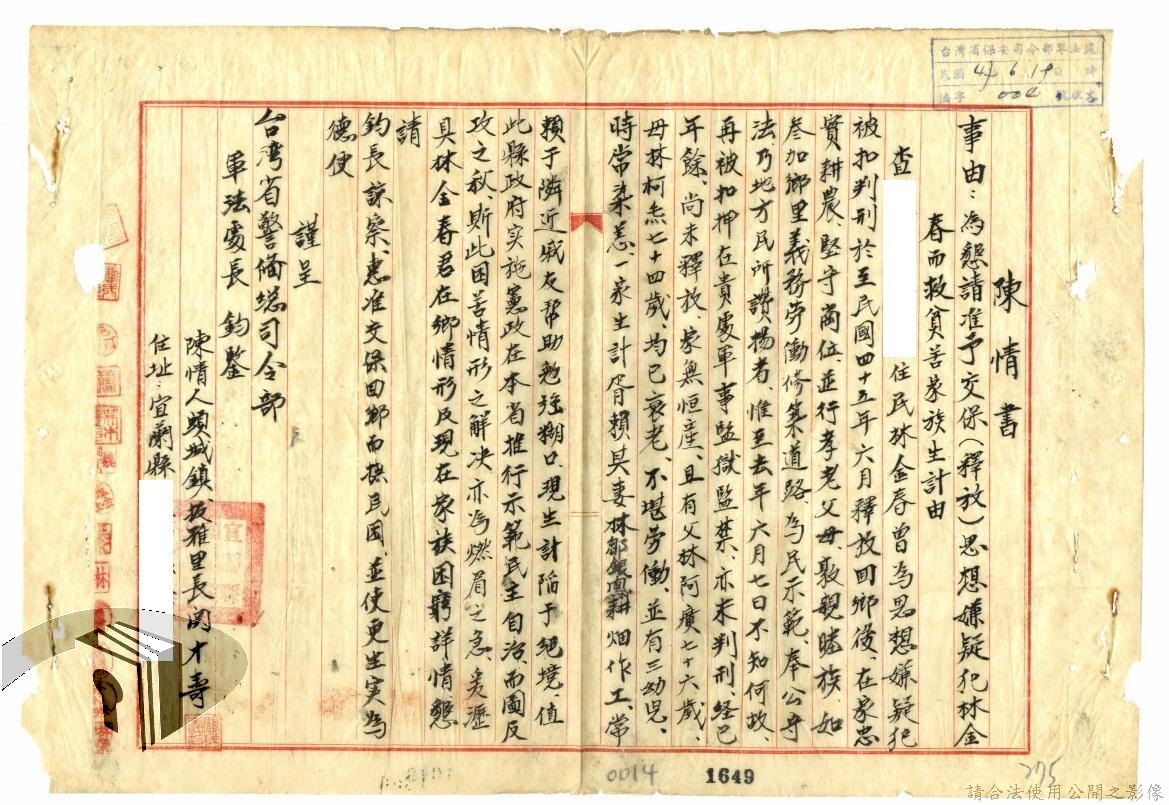 陳情書
事由：為懇請准予交保（釋放）思想嫌疑犯林金
春而救貧苦家族生計由
查
住民林金春曾為思想嫌疑犯
被扣判刑於至民國四十五年六月釋放回鄉後、在家忠
實耕農、堅守崗位、並行孝老父母、敦親睦族、如
參加鄉里義務勞働修築道路、為民示範、奉公守
法、乃地方民所讚揚者、惟至去年六月七日不知何故、
再被扣押在貴處軍事監獄監禁、亦未判刑、經已
年餘、尚未釋放、家無恒産、且有父林阿廣七十六歲、
母林柯𤆬七十四歲、均已衰老、不堪勞働、並有三幼児、
時常染恙、一家生計胥賴其妻林鄒銀鳳耕畑作工、常
賴于隣近戚友幫助勉强糊口、現生計陷于絕境、值
此縣政府实施憲政在本省推行示範民主自治、而圖反
攻之秋、則此困苦情形之解决亦為燃眉之急、爰瀝
具林金春君在鄉情形及現在家族困窮詳情懇
請
鈞長諒察、惠准交保回鄉而撫民困、並使更生实為
德便
謹呈
台湾省警備總司令部
軍法處長 鈞鑒
陳情人頭城鎮、拔雅里長闕才壽
住址：宜蘭縣
台灣省保安司令部軍法處
民國 47 6 19 日 時
法字 004 號收文
0014
1649
275
請合法使用公開之影像